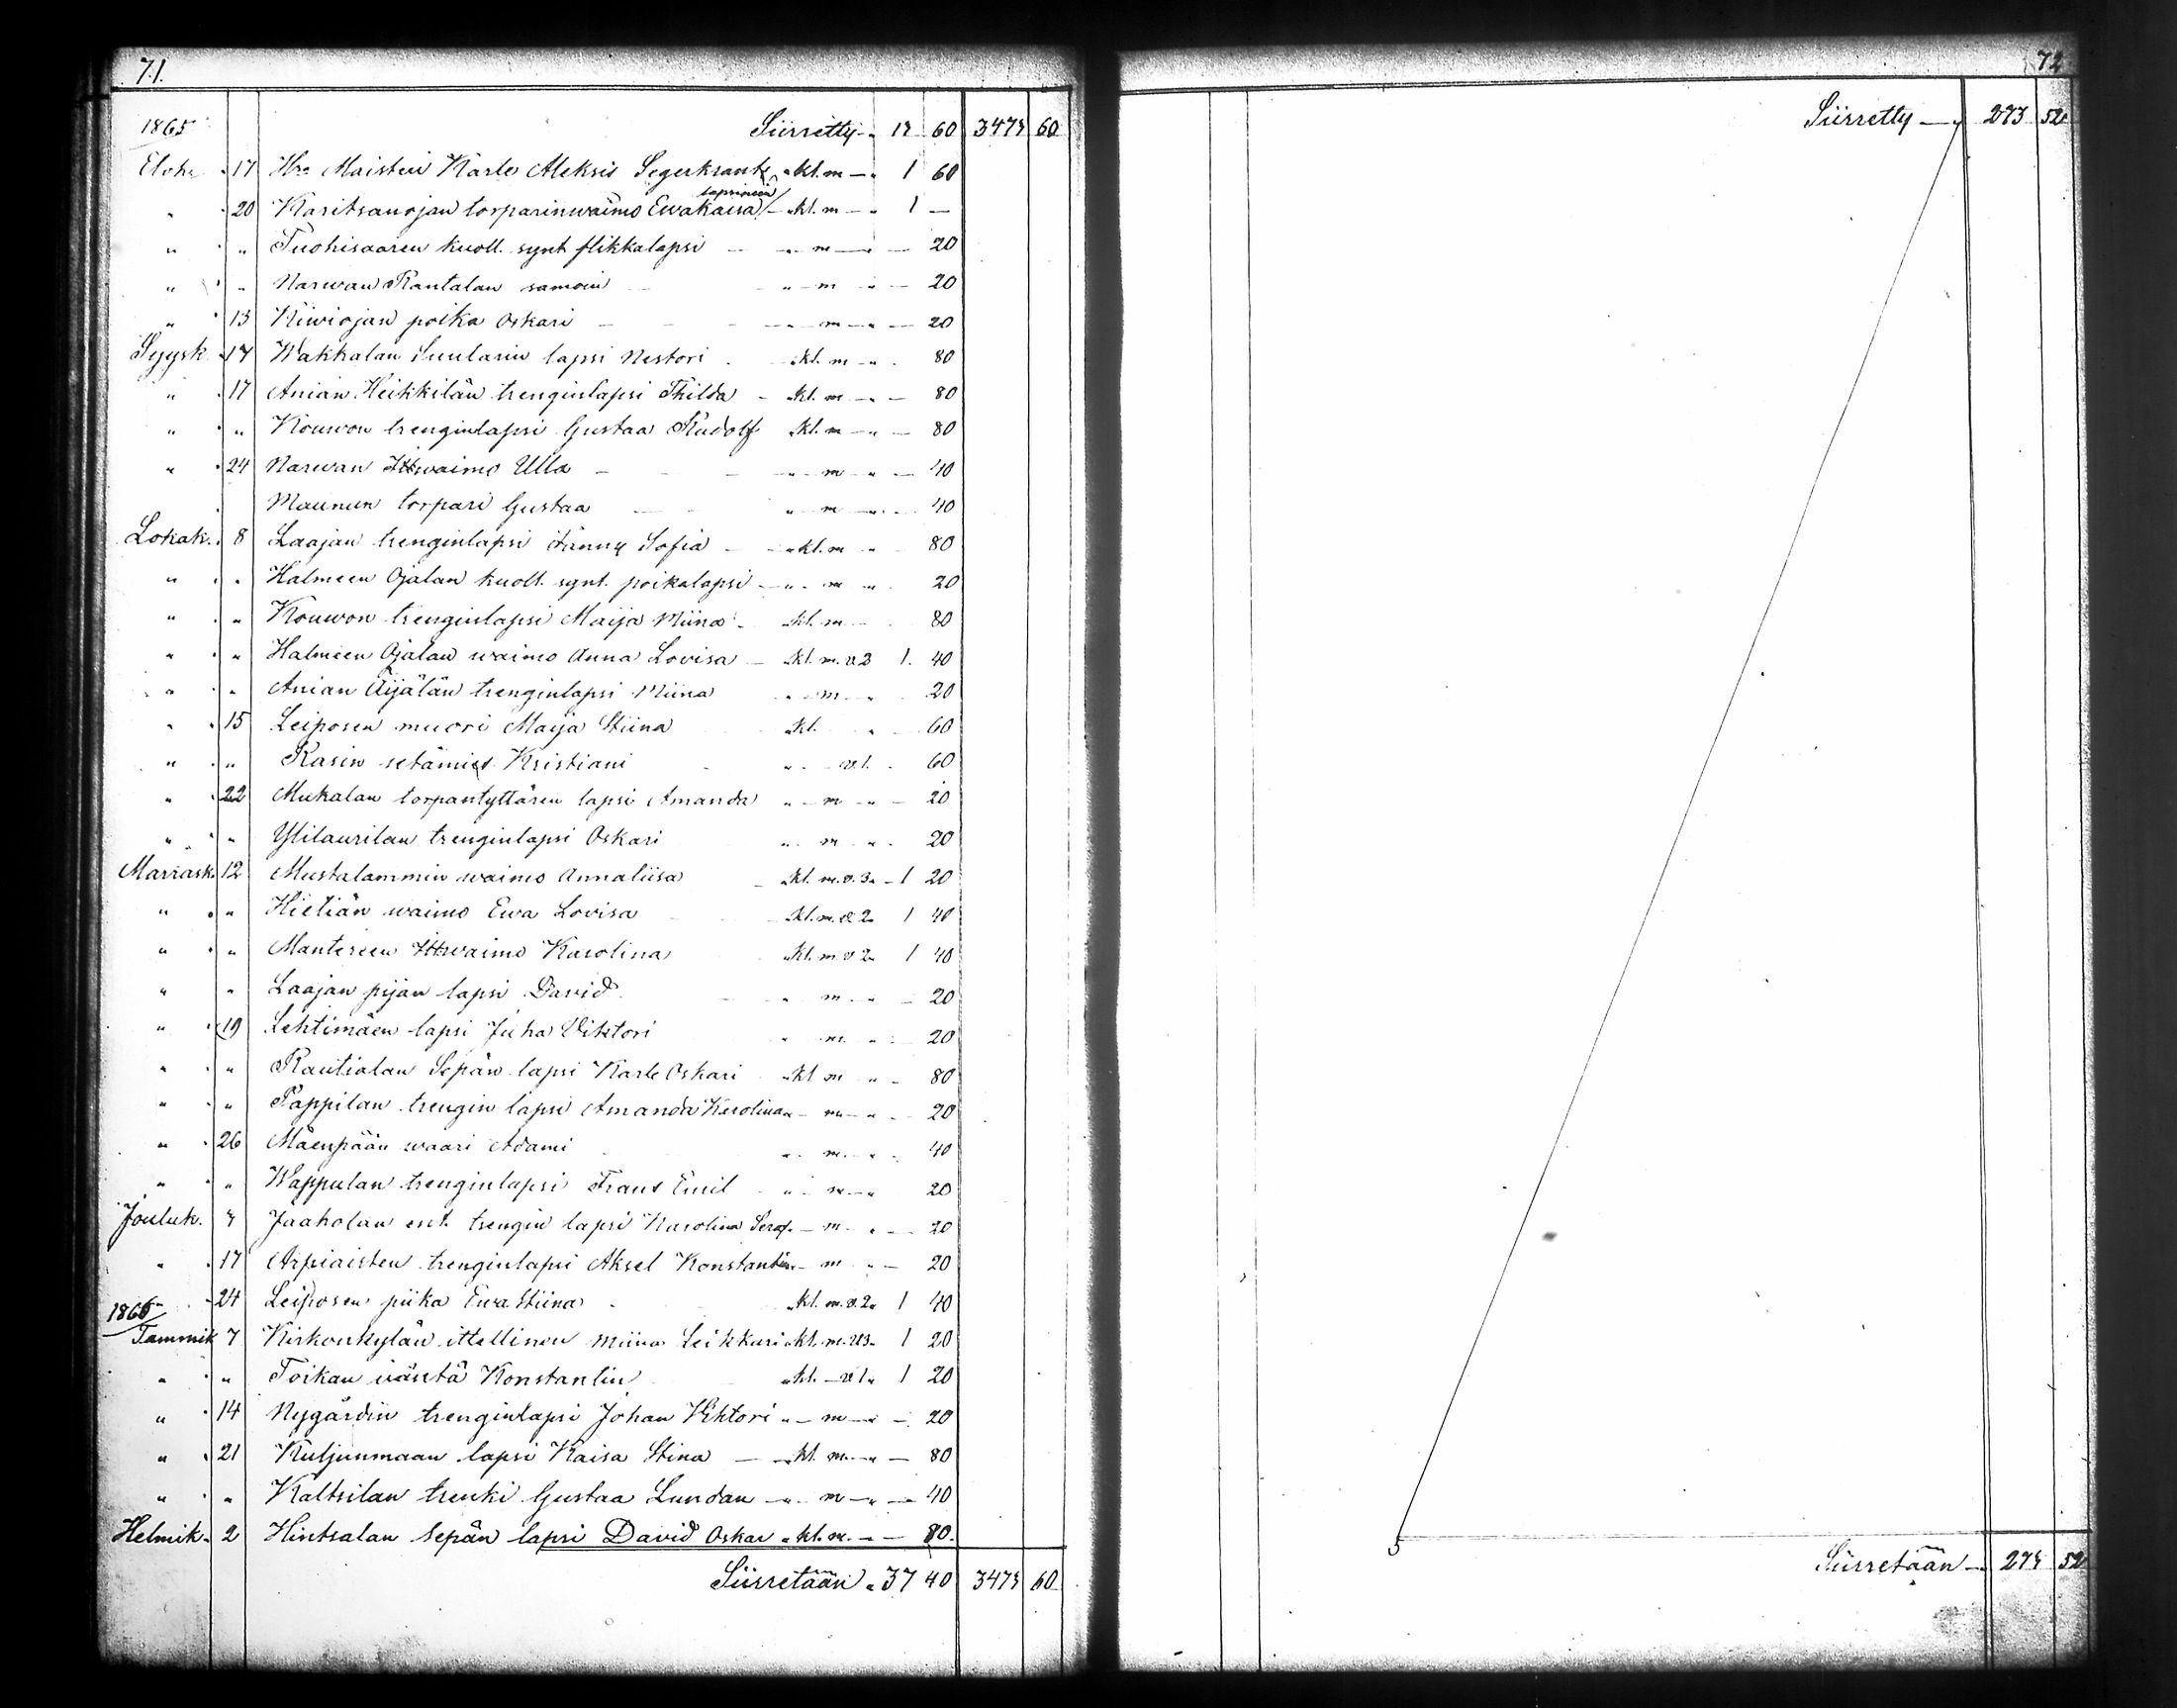 71.
1865 Siirretty „ 17 60 3473 60
Eloh. 17 Hra Maisteri Karle Aleksis Segerkrantz „ kl. m — „ 1 60
„ 20 Karitsanojan torparinwaimo Ewakaisa lapsineen — „ kl. m — „ 1 —
„ „ Tuohisaaren kuoll. synt flikkalapsi — „ m — „ — 20
„ „ Narwan Rantalan samoin „ — m „ — 20
„ 13 Kiwiojan poika Oskari — m — „ — 20
Syysk. 14 Wakkalan Suularin lapsi Nestori „ kl. m — „ 80
„ 17 Anian Heikkilän trenginlapsi Thilda — „ kl. m — „ — 80
„ „ Kouwon trenginlapsi Gustaa Rudolf „ kl. m — „ — 80
„ 24 Narwan Ittwaimo Ulla — „ — m „ — 40
Maunun torpari Gustaa „ m — „ 40
Lokak. 8 Laajan trenginlapsi Fanny Sofia — „ kl. m „ 80
„ „ Halmeen Ojalan kuoll. synt. poikalapsi — „ m „ 20
„ „ Kouwon trenginlapsi Maija Miina „ kl. m 80
„ „ Halmeen Ojalan waimo Anna Lovisa — „ kl. m. v 2 1. 40
„ „ Anian Äijälän trenginlapsi Miina „ m — „ 20
„ 15 Leiposen muori Maija Stiina „ kl. „ 60
„ „ Rasin setämies Kristiani „ — v. 1. 60
„ 22 Mukalan torpantyttären lapsi Amanda „ — m „ — 20
„ „ Ylilaurilan trenginlapsi Oskari „ m „ 20
Marrask. 12 Mustalammin waimo Annaliisa „ kl. m. v. 3 „ — 1 20
„ „ Hietiän waimo Ewa Lovisa „ kl. m. v 2 „ 1 40
„ „ Mantereen Ittwaimo Karolina „ kl. m. v 2 „ 1 40
„ „ Laajan pijan lapsi David „ m — „ — 20
„ 19 Lehtimäen lapsi Juha Viktori „ m. „ 20
„ „ Rautialan Sepän lapsi Karle Oskari „ kl m „ — 80
„ „ Pappilan trengin lapsi Amanda Karolina „ — m — „ 20
„ 26 Mäenpään waari Adami „ m. „ 40
„ „ Wappulan trenginlapsi Frans Emil „ — m — „ 20
Jouluk. Jaakolan ent. trengin lapsi Karolina Seraf. — m. „ — 20
„ 17 Arpiaisten trenginlapsi Aksel Konstantin — m „ — 20
„ 24 Leiposen piika Ewa Stiina „ kl. m. v. 2 „ 1 40
1866
Tammik 7 Kirkonkylän itellinen Miina Leikkari „ kl. m. v 3 „ 1 20
„ „ Toikan isäntä Konstantin „ kl. — v 1 „ 1 20
„ 14 Nygårdin trenginlapsi Johan Viktori „ — m — „ — 20
„ 21 Kuljunmaan lapsi Kaisa Stina — „ kl. m. — „ — 80
„ „ Kaltsilan trenki Gustaa Lundan — „ m — „ — 40
Helmik. 2 Hintsalan Sepän lapsi David Oskar „ kl. m. — — 80.
Siirretään „ 37 40 3473 60
72
Siirretty — „ 273 52
Siirretään — 273 52